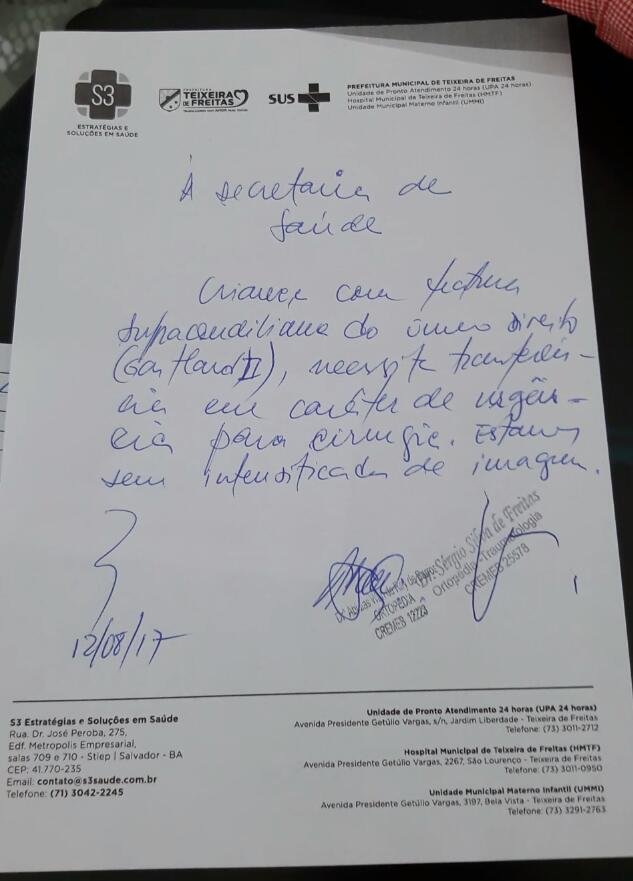 S3
ESTRATÉGIAS E
SOLUÇÕES EM SAÚDE
PREFEITURA
TEIXEIRA
DE FREITAS
SUS
PREFEITURA MUNICIPAL DE TEIXEIRA DE FREITAS
Unidade de Pronto Atendimento 24 horas (UPA 24 horas)
Hospital Municipal de Teixeira de Freitas (HMTF)
Unidade Municipal Materno Infantil (UMMI)
À secretaria de
Saúde
Criança com fratura
supracondiliana do úmero direito
(Gartland II), necessita transferên-
cia em caráter de urgên-
cia para cirurgia. Estamos
sem intensificador de imagem.
12/08/17
Dr. Sérgio Silva de Freitas
Ortopedia-Traumatologia
CREMEB 25578
ORTOPEDIA
CREMEB 12223
S3 Estratégias e Soluções em Saúde
Rua. Dr. José Peroba, 275,
Edf. Metropolis Empresarial,
salas 709 e 710 - Stiep | Salvador - BA
CEP: 41.770-235
Email: contato@s3saude.com.br
Telefone: (71) 3042-2245
Unidade de Pronto Atendimento 24 horas (UPA 24 horas)
Avenida Presidente Getúlio Vargas, s/n, Jardim Liberdade - Teixeira de Freitas
Telefone: (73) 3011-2712
Hospital Municipal de Teixeira de Freitas (HMTF)
Avenida Presidente Getúlio Vargas, 2267, São Lourenço - Teixeira de Freitas
Telefone: (73) 3011-0950
Unidade Municipal Materno Infantil (UMMI)
Avenida Presidente Getúlio Vargas, 3197, Bela Vista - Teixeira de Freitas
Telefone: (73) 3291-2763